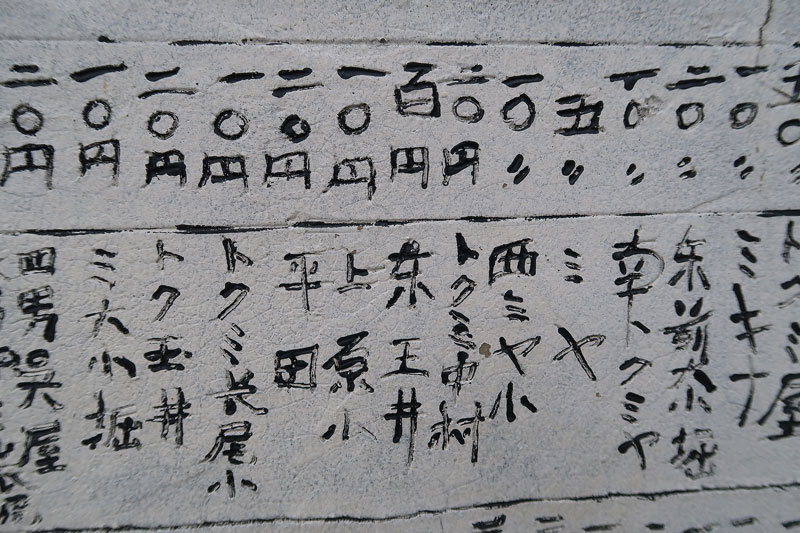 五〇〃
一〇〃 ミキナ
二〇〃 东前小堀
一〇〃 南トクミヤ
五〃 ミヤ
一〇〃 西ミヤ小
二〇円 トクミ中村
百円 东王井
一〇円 上原小
二〇円 平田
一〇円 トクミ长尾小
二〇円 トク玉井
一〇円 ミ大小堀
二〇円 四男呉屋